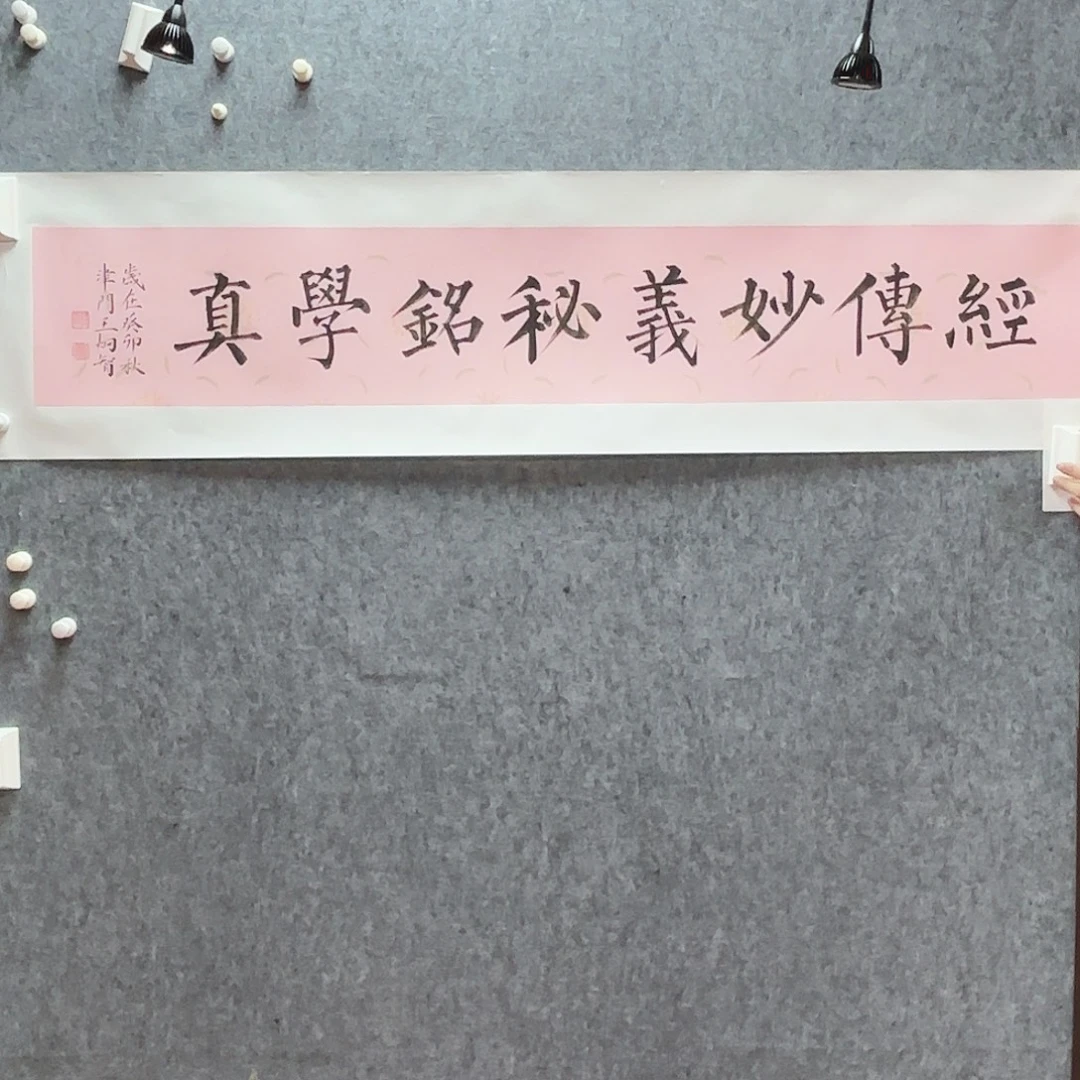 經傳妙義秘銘學真
歲在癸卯秋
津門王炯智